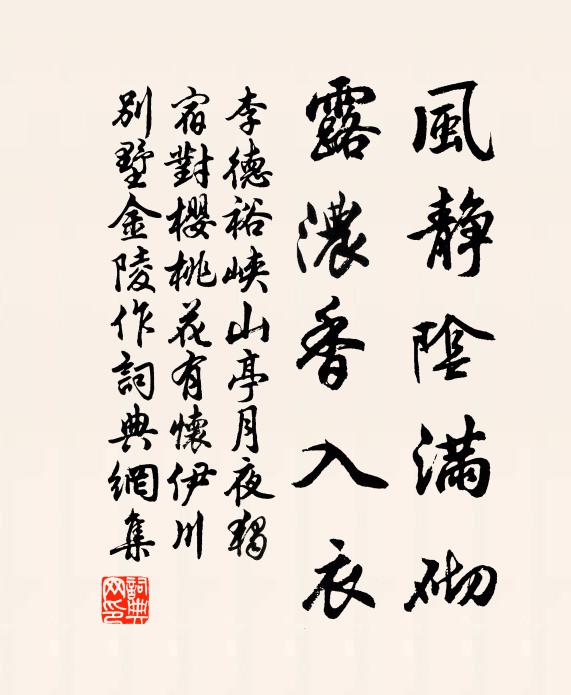 風静陰滿砌
露濃香入衣
李德裕峽山亭月夜獨
宿對櫻桃花有懷伊川
別墅金陵作詞典網集
詞典網印